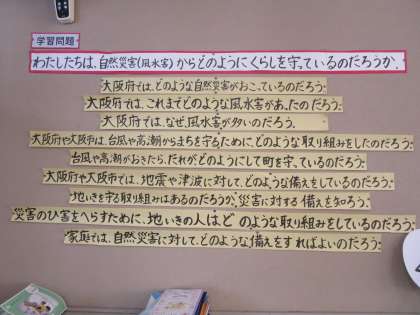 学習問題
わたしたちは、自然災害(風水害)からどのようにくらしを守っているのだろうか。
大阪府では、どのような自然災害がおこっているのだろう。
大阪府では、これまでどのような風水害があったのだろう。
大阪府では、なぜ、風水害が多いのだろう。
大阪府や大阪市は、台風や高潮からまちを守るために、どのような取り組みをしたのだろう。
台風や高潮がおきたら、だれがどのようにして町を守っているのだろう。
大阪府や大阪市では、地震や津波に対して、どのような備えをしているのだろう。
地いきを守る取り組みはあるのだろうか。災害に対する備えを知ろう。
災害のひ害をへらすために、地いきの人はどのような取り組みをしているのだろう。
家庭では、自然災害に対して、どのような備えをすればよいのだろう。